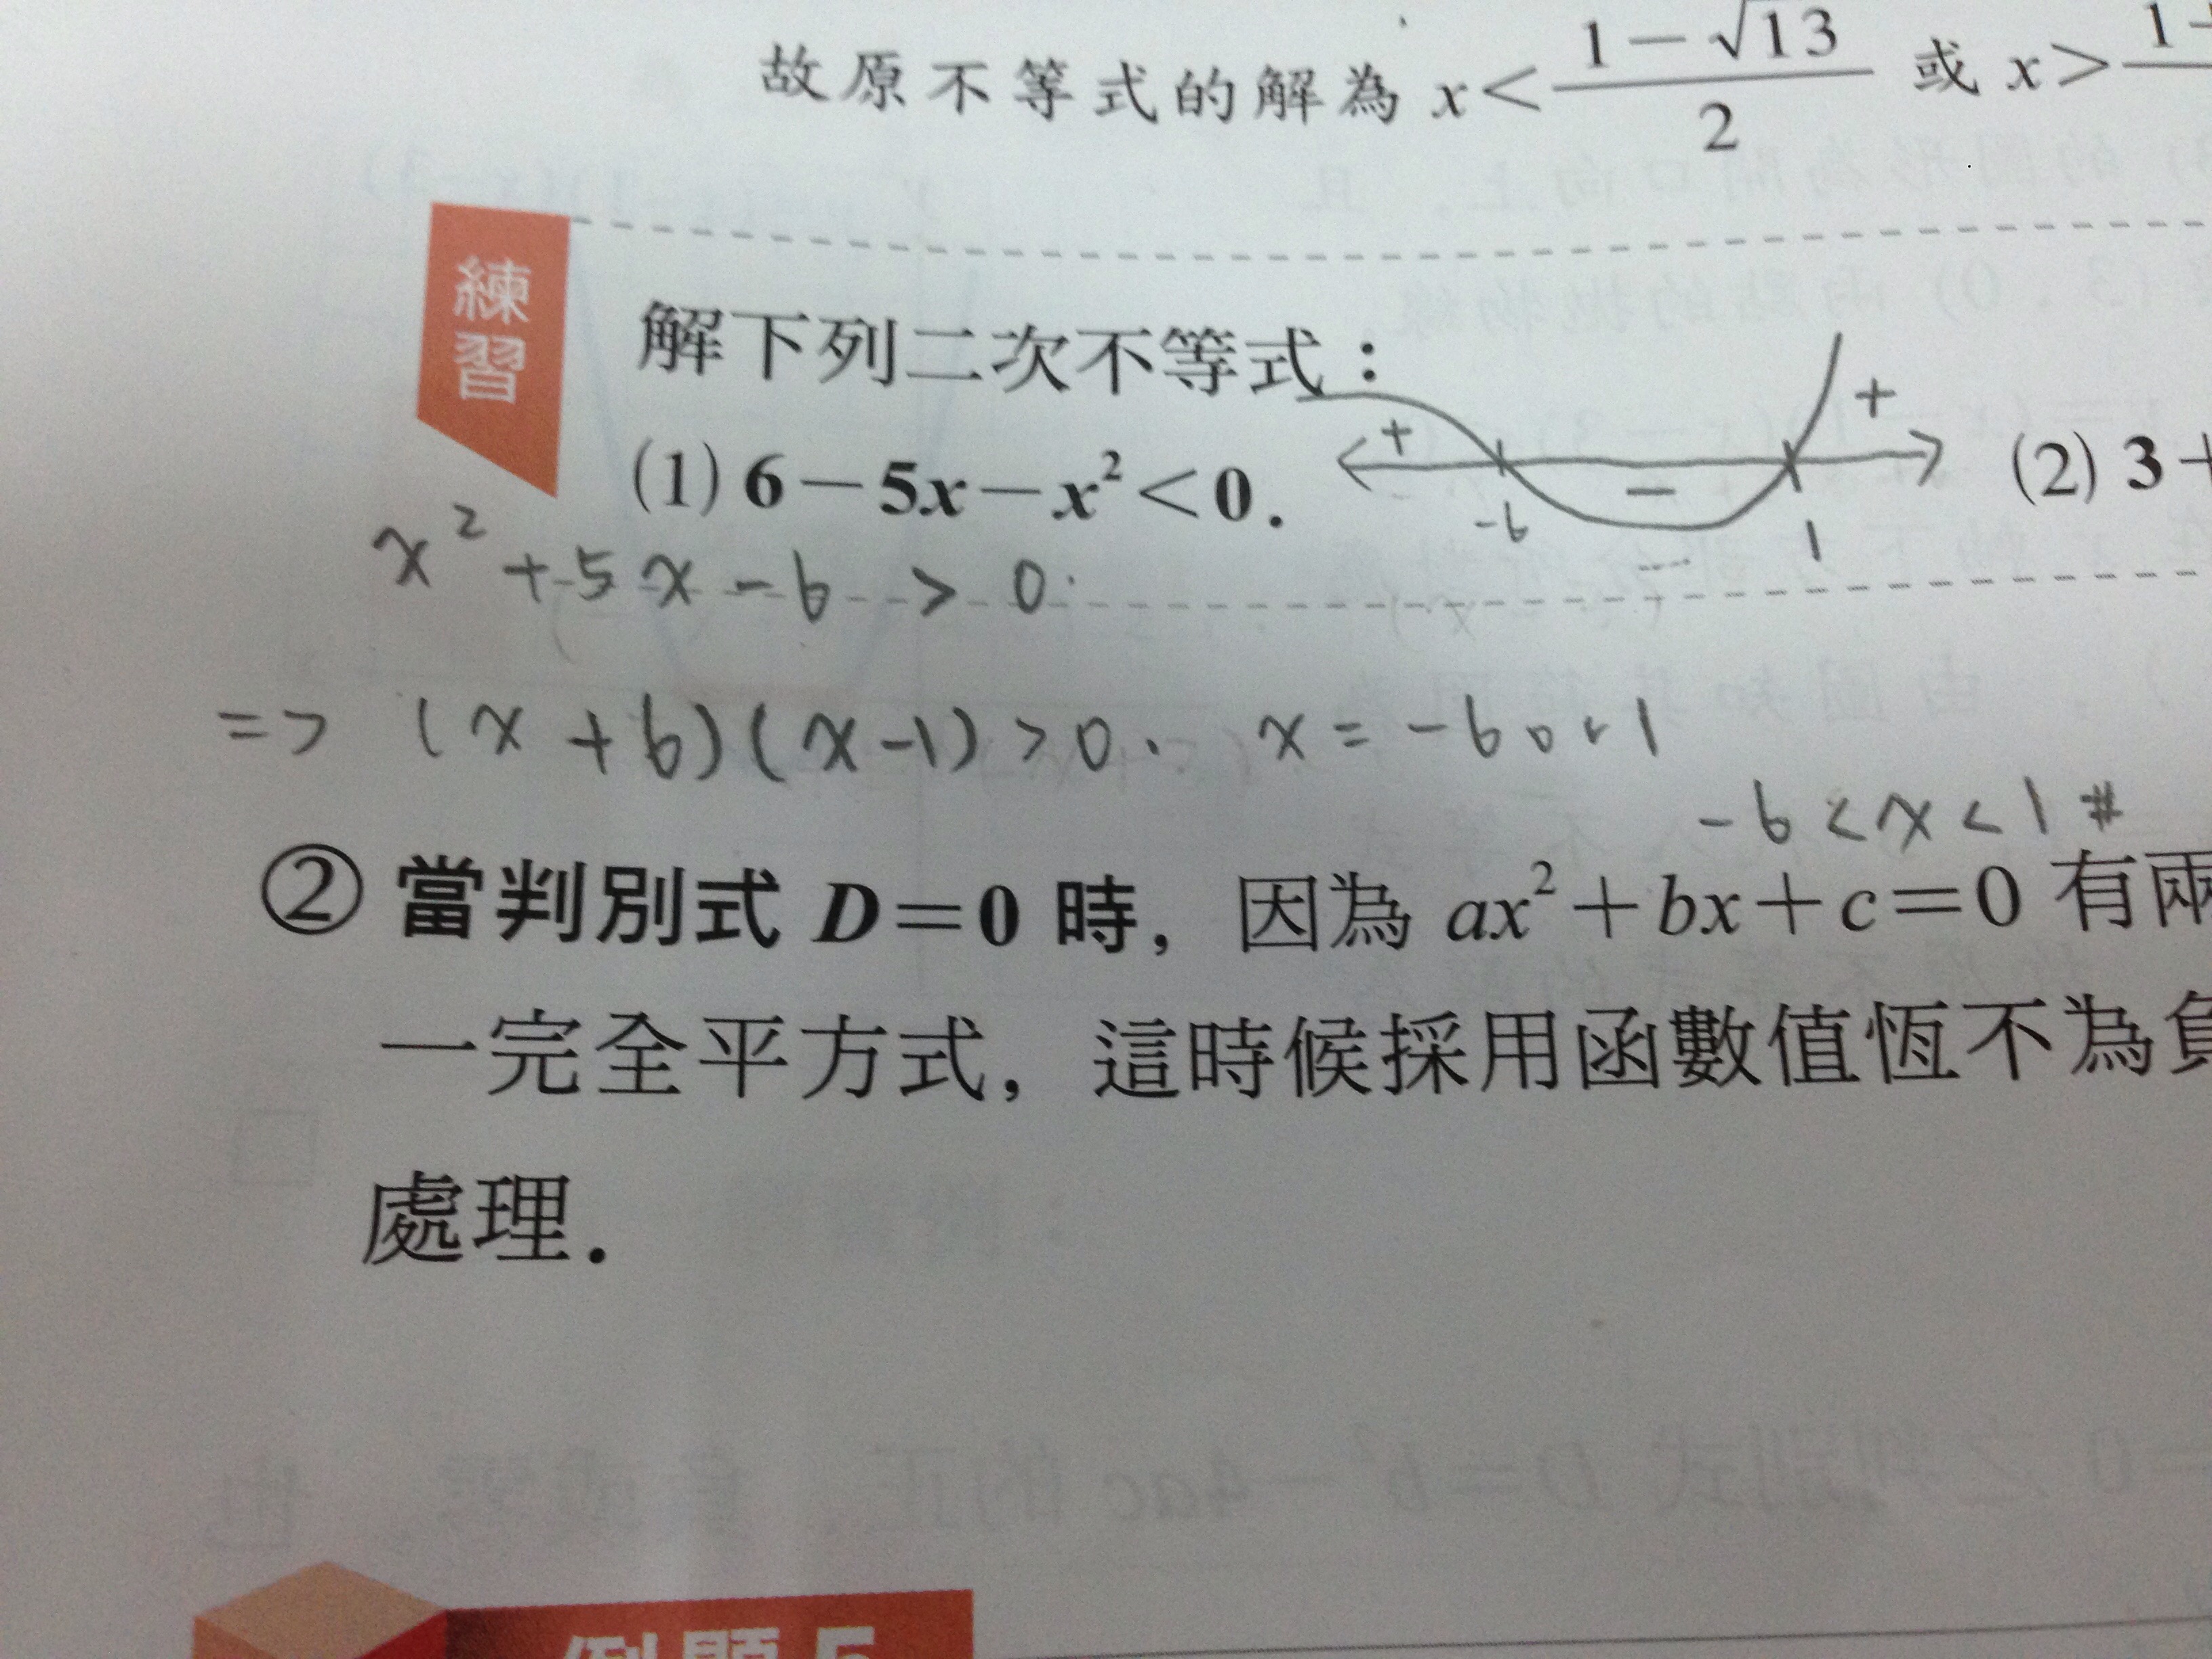 故原不等式的解為 x < (1 − √13)/2 或 x > 1
練習
解下列二次不等式：
(1) 6 − 5x − x² < 0.
+ − +
-6 1
(2) 3 +
x² + 5x - 6 > 0.
=> (x + 6)(x - 1) > 0. x = -6 or 1
-6 < x < 1 #
② 當判別式 D = 0 時，因為 ax² + bx + c = 0 有兩
一完全平方式，這時候採用函數值恆不為負
處理．
例題 5